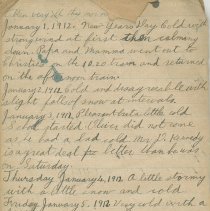 Ben very ill this
January 1, 1912. New Years Day Cold with
strong wind at first then calming
down. Papa and Mamma went out to
Christies on the 10.20 train and returned
on the afternoon train.
January 2, 1912 Cold and disagreeable with a
slight fall of snow at intervals.
January 3, 1912 Pleasant but a little cold
School started Clive did not come
as it had a bad cold. Mrs. J. Kennedy
a great deal better than he was
on Saturday.
Thursday January 4, 1912 A little stormy
with a little snow and cold
Friday January 5, 1912 Very cold with a